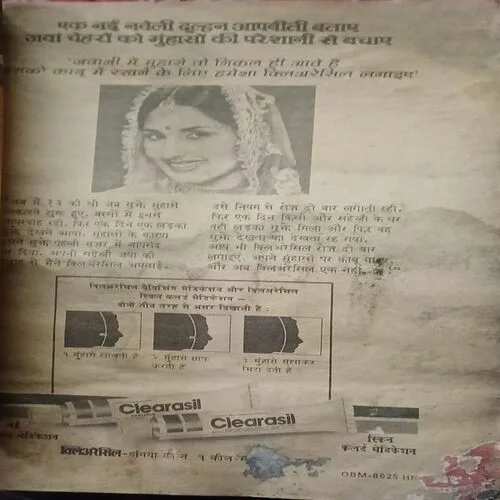 एक नई नवेली दुल्हन आपबीती बताए
जवां चेहरों को मुंहासों की परेशानी से बचाए
'जवानी में मुंहासे तो निकल ही आते हैं
काबू में रखने के लिए हमेशा क्लिअरेसिल लगाइए'
जब मैं १३ की थी जब मुझे मुंहासे
निकलने शुरू हुए. बरसों मैं इनसे
लापरवाह रही. फिर एक दिन एक लड़का
मुझे देखने आया. मुंहासों के कारण
उसने मुझे पहली नज़र में नापसंद
कर दिया. अपनी सहेली जया की
से मैंने क्लिअरेसिल अपनाई.
उसे नियम से रोज़ दो बार लगाती रही.
फिर एक दिन किसी और सहेली के घर
वही लड़का मुझे मिला और फिर वह
मुझे देखता का देखता रह गया.
आप भी क्लिअरेसिल रोज़ दो बार
लगाइए. अपने मुंहासों पर काबू पाइए
और अब क्लिअरेसिल एक नहीं,
क्लिअरेसिल वैनिशिंग मेडिकेशन और क्लिअरेसिल
स्किन कलर्ड मेडिकेशन –
दोनों तीन तरह से असर दिखाती हैं:
१ मुंहासे खोलती हैं
२ मुंहासे साफ़
करती हैं
३ मुंहासे सुखाकर
मिटा देती हैं
Clearasil
Clearasil
मेडिकेशन
स्किन
कलर्ड मेडिकेशन
क्लिअरेसिल-दुनिया की नं. १ कील
OBM-8625 HN